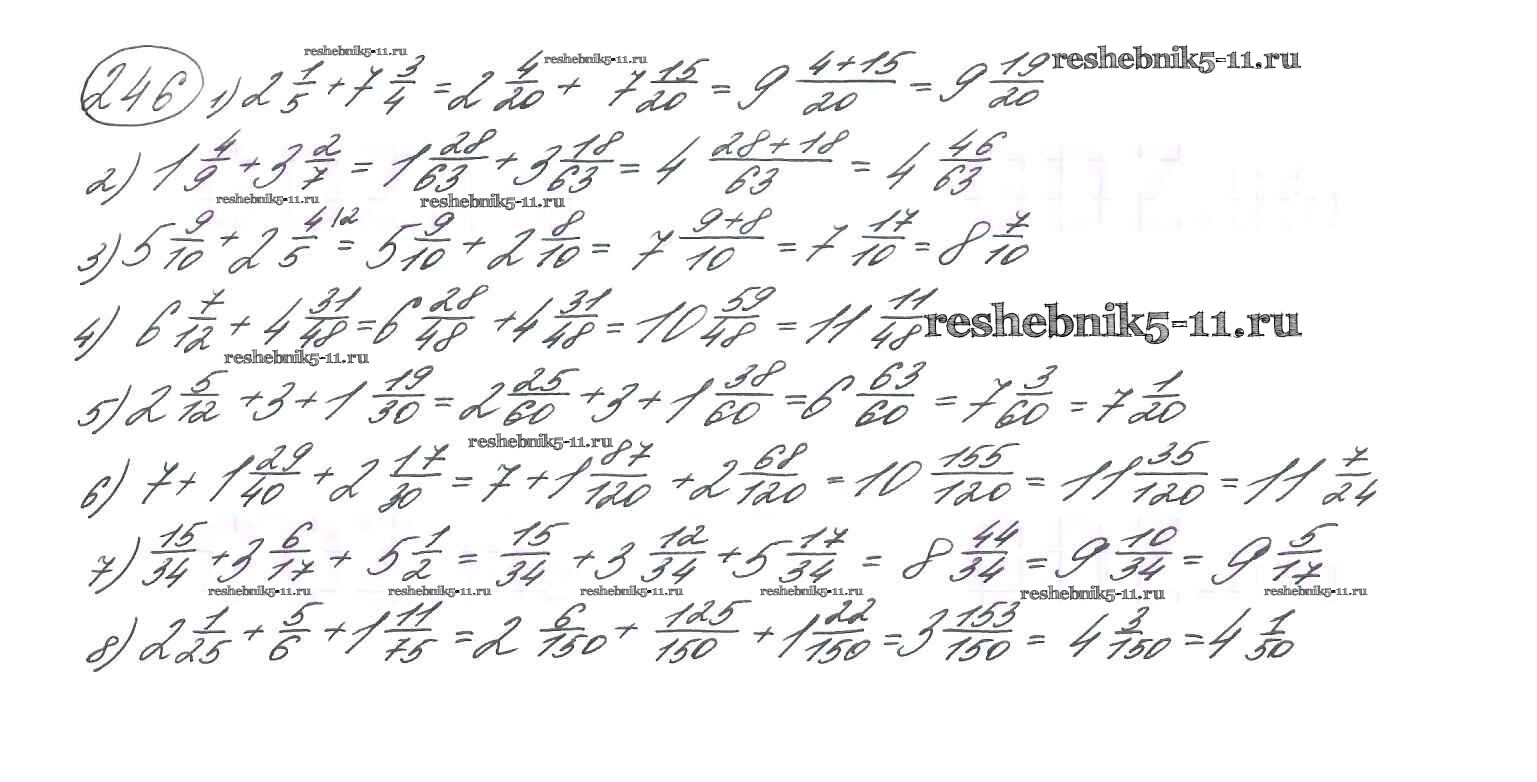 reshebnik5-11.ru
246 1) 2 1/5 + 7 3/4 = 2 4/20 + 7 15/20 = 9 (4+15)/20 = 9 19/20 reshebnik5-11.ru reshebnik5-11.ru
2) 1 4/9 + 3 2/7 = 1 28/63 + 3 18/63 = 4 (28+18)/63 = 4 46/63
reshebnik5-11.ru reshebnik5-11.ru
3) 5 9/10 + 2 4/5 |2 = 5 9/10 + 2 8/10 = 7 (9+8)/10 = 7 17/10 = 8 7/10
4) 6 7/12 + 4 31/48 = 6 28/48 + 4 31/48 = 10 59/48 = 11 11/48 reshebnik5-11.ru
reshebnik5-11.ru
5) 2 5/12 + 3 + 1 19/30 = 2 25/60 + 3 + 1 38/60 = 6 63/60 = 7 3/60 = 7 1/20
reshebnik5-11.ru
6) 7 + 1 29/40 + 2 17/30 = 7 + 1 87/120 + 2 68/120 = 10 155/120 = 11 35/120 = 11 7/24
7) 15/34 + 3 6/17 + 5 1/2 = 15/34 + 3 12/34 + 5 17/34 = 8 44/34 = 9 10/34 = 9 5/17
reshebnik5-11.ru reshebnik5-11.ru reshebnik5-11.ru reshebnik5-11.ru reshebnik5-11.ru reshebnik5-11.ru
8) 2 1/25 + 5/6 + 1 11/75 = 2 6/150 + 125/150 + 1 22/150 = 3 153/150 = 4 3/150 = 4 1/50